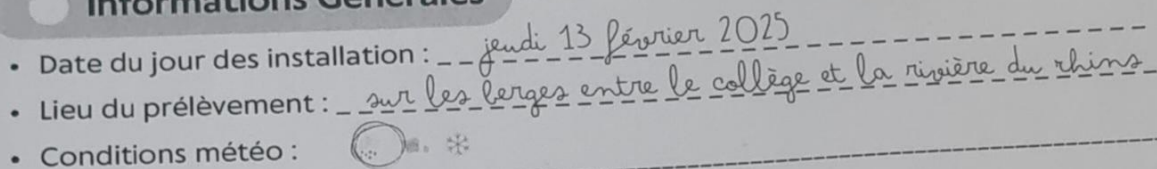 Informations Générales
• Date du jour des installation : jeudi 13 février 2025
• Lieu du prélèvement : sur les berges entre le collège et la rivière du rhins
• Conditions météo :